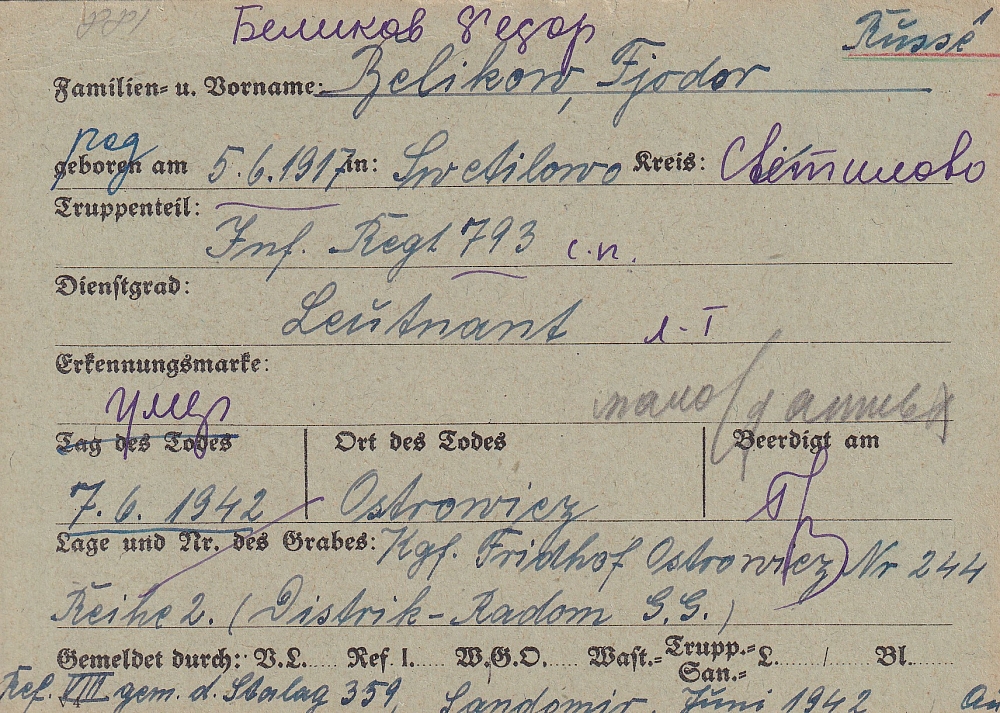 Беликов Федор
Russe
Familien= u. Vorname: Belikow, Fjodor
род
geboren am 5.6.1917 in: Swetilowo Kreis: Светилово
Truppenteil:
Inf. Regt 793 с.п.
Dienstgrad:
Leutnant л-т
Erkennungsmarke:
умер
мало данных
Tag des Todes Ort des Todes Beerdigt am
7.6.1942 Ostrowicz
Lage und Nr. des Grabes: Kgf. Fridhof Ostrowicz Nr 244
Reihe 2. (Distrik-Radom G.G.)
Gemeldet durch: V.L. Ref. I. W.G.O. Wast.= Trupp.= San.= L. / Bl.
Ref. VIII gem. d. Stalag 359, Sandomir, Juni 1942